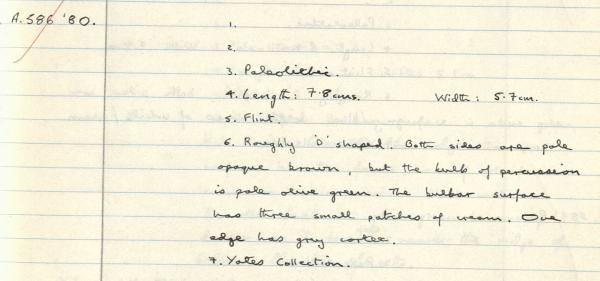 A.586 '80.
1.
2.
3. Paleolithic.
4. Length: 7.8cms. Width: 5.7cm.
5. Flint.
6. Roughly 'D' shaped. Both sides are pale
opaque brown, but the bulb of percussion
is pale olive green. The bulbar surface
has three small patches of cream. One
edge has grey cortex.
7. Yates Collection.